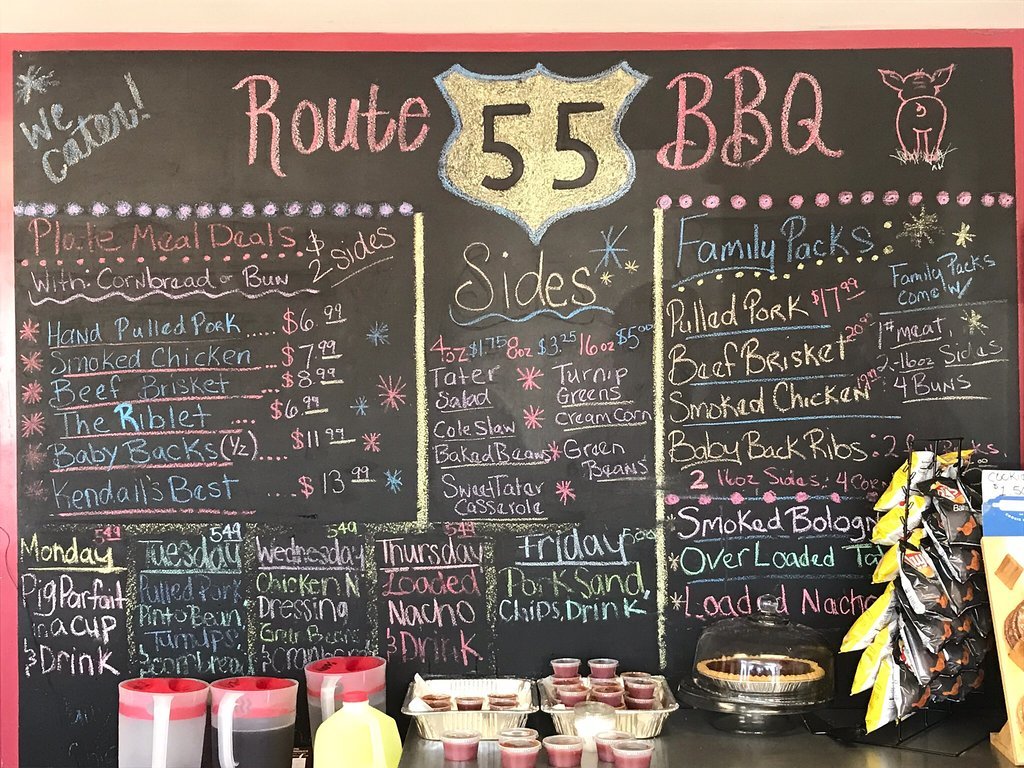 We
Cater!
Route 55 BBQ
Plate Meal Deals $
2 Sides
With: Cornbread or Bun
Hand Pulled Pork .... $6.99
Smoked Chicken ... $7.99
Beef Brisket ... $8.99
The Riblet ... $6.99
Baby Backs (1/2) $11.99
Kendall's Best .... $13.99
Sides
4oz $1.75 8oz $3.25 16oz $5.00
Tater Salad
Cole Slaw
Baked Beans
Sweet Tater
Casserole
Turnip
Greens
Cream Corn
Green
Beans
Family Packs
Family Packs
Come W/
1# meat,
2-16oz Sides
4 Buns
Pulled Pork $17.99
Beef Brisket
Smoked Chicken
Baby Back Ribs: 2
2 16oz Sides, 4 Cor
Smoked Bologn
Over Loaded
Loaded Nacho
Monday 5.49
Pig Parfait
in a cup
& Drink
Tuesday 5.49
Pulled Pork
Pinto Bean,
Turnips,
& Cornbread
Wednesday 5.49
Chicken N
Dressing
Green Beans
& Cranberry
Thursday 5.49
Loaded
Nacho
& Drink
Friday 5.00
Pork Sand,
Chips, Drink